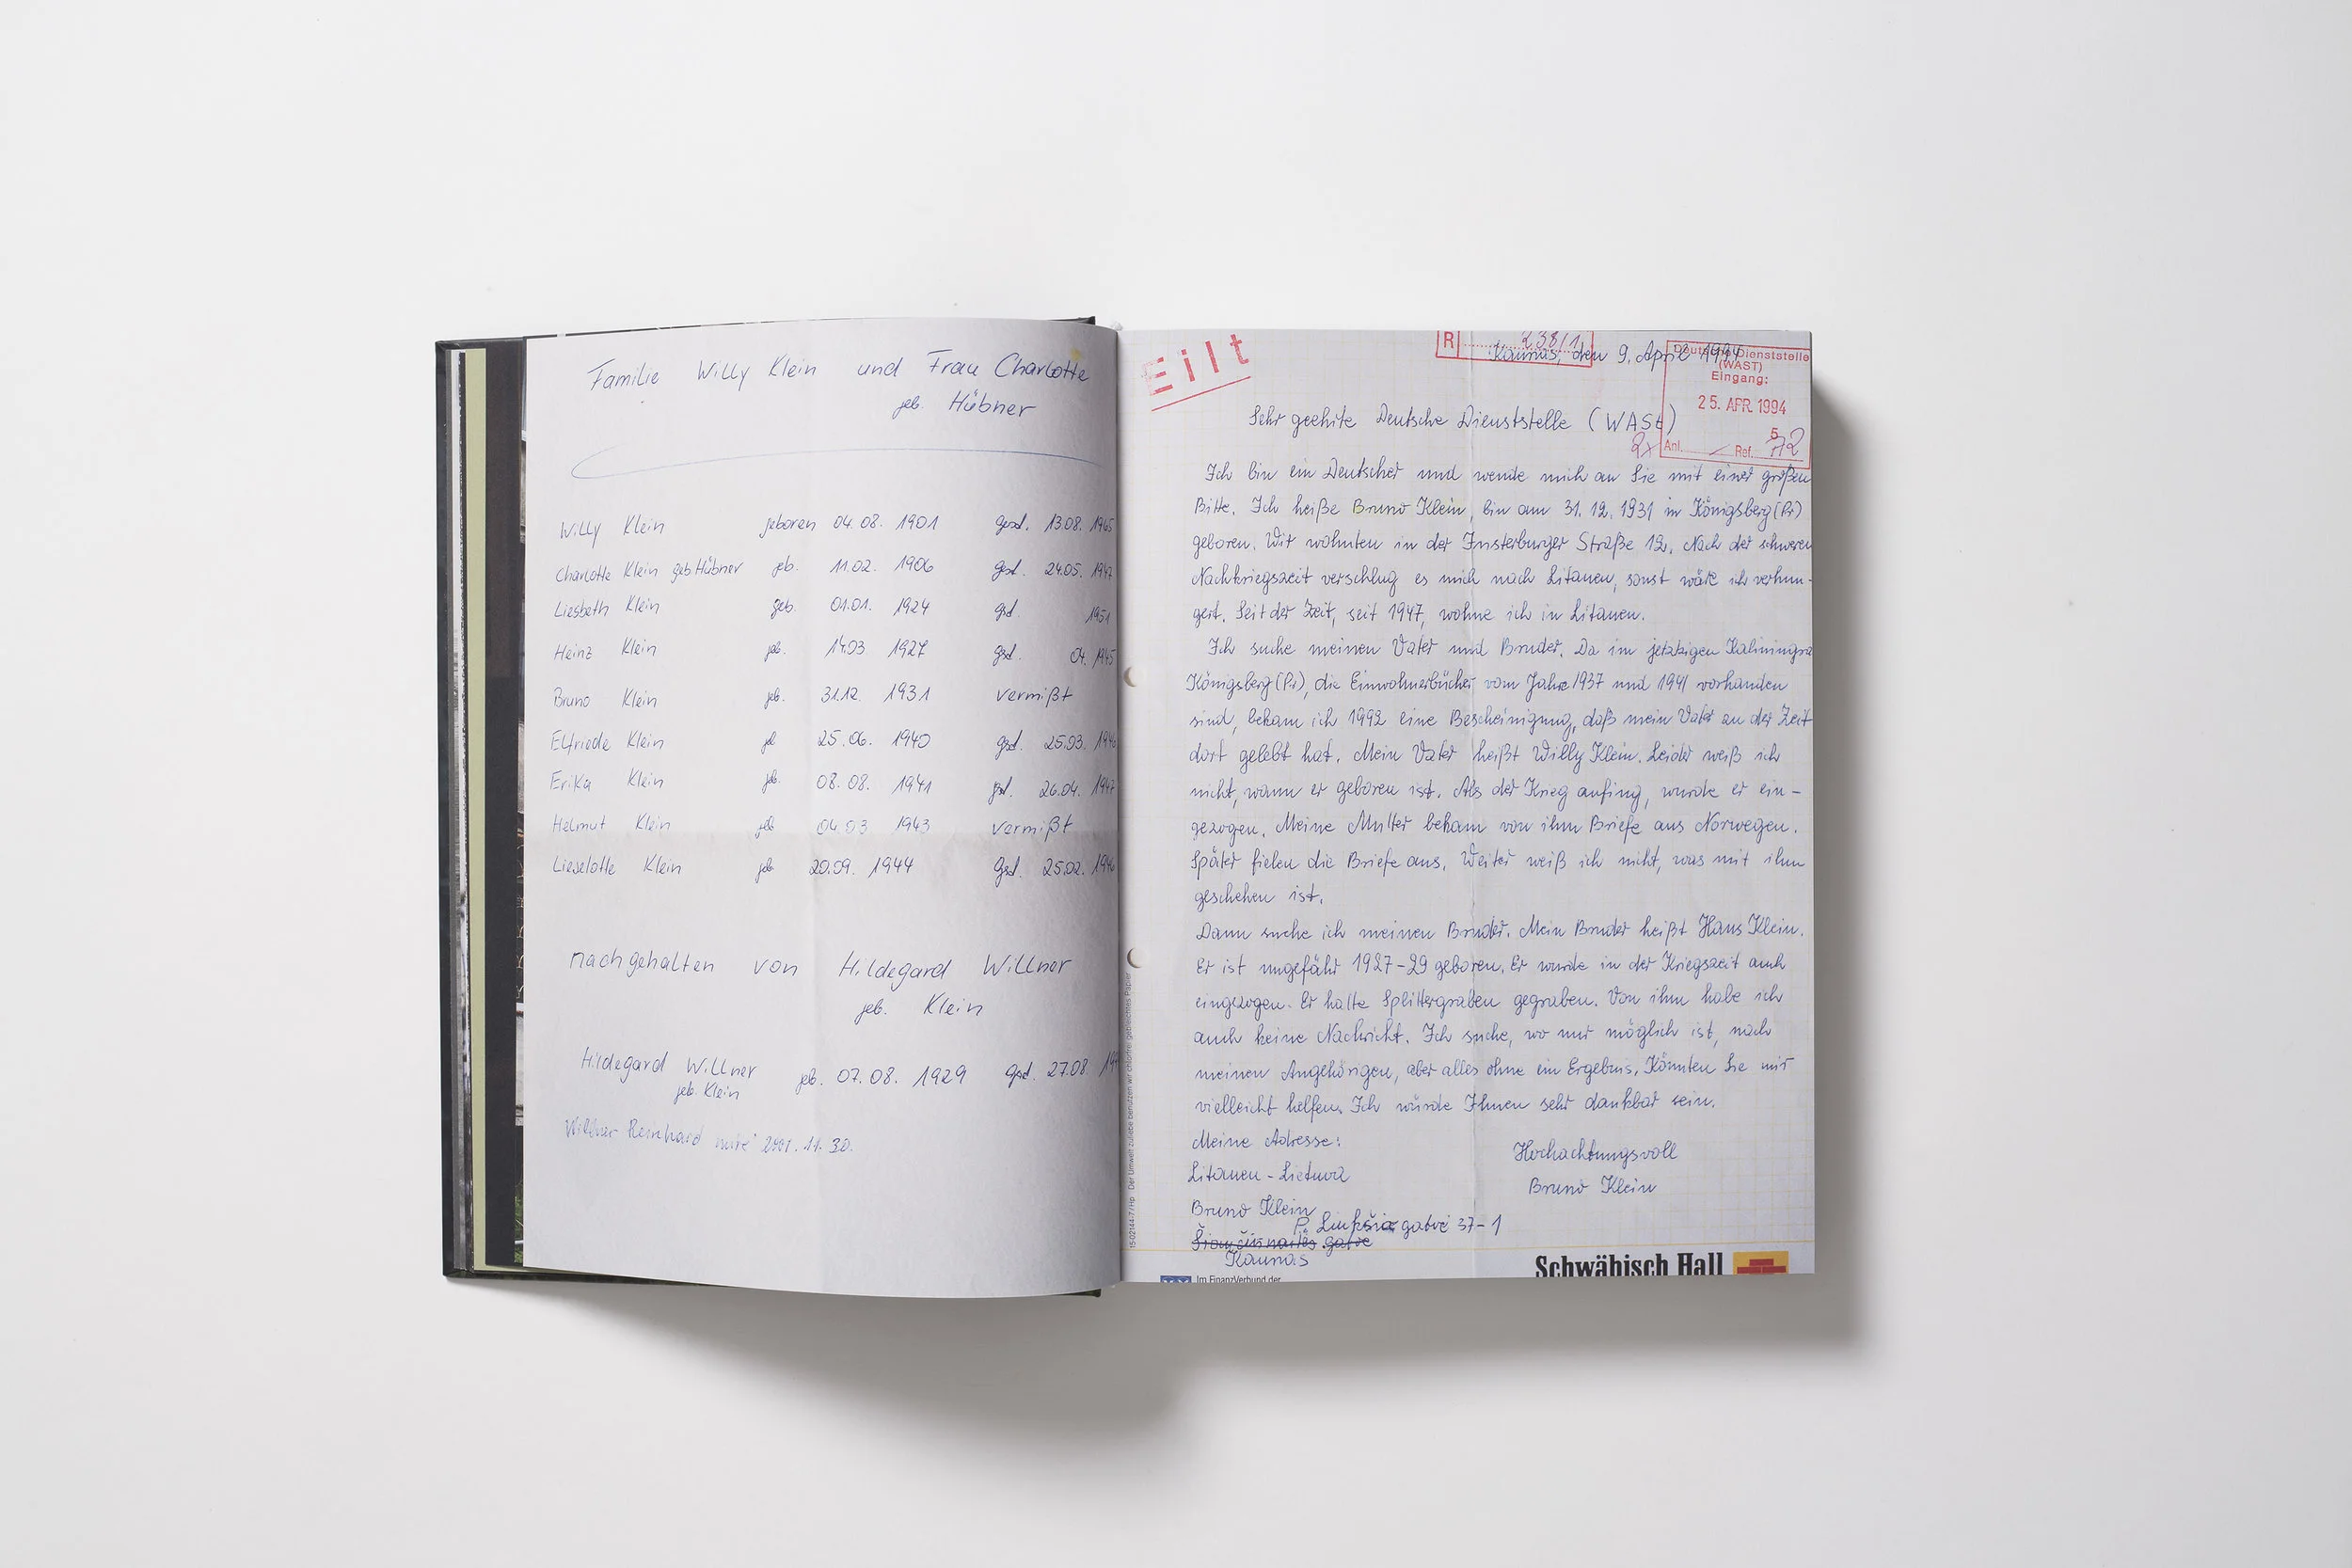 Familie Willy Klein und Frau Charlotte
geb. Hübner
Willy Klein geboren 04.08. 1901 gest. 13.08. 1965
Charlotte Klein geb Hübner geb. 11.02. 1906 gest. 24.05. 1947
Liesbeth Klein geb. 01.01. 1924 gest 1951
Heinz Klein geb. 14.03 1927 gest. 04. 1945
Bruno Klein geb. 31.12. 1931 vermißt
Elfriede Klein geb 25.06. 1940 gest. 25.03. 194
Erika Klein geb. 08.08. 1941 gest. 26.04. 1947
Helmut Klein geb 04 03 1943 vermißt
Lieselotte Klein geb 20.09. 1944 gest. 25.02. 194
nachgehalten von Hildegard Willner
geb. Klein
Hildegard Willner geb. 07.08. 1929 gest. 27.08. 19
geb. Klein
Willner Reinhard mirė 2001.11.30.
Eilt
R 238/1
Kaunas, den 9. April 1994
Deutsche Dienststelle
(WASt)
Eingang:
25. APR. 1994
5
2x Anl. Ref. 72
Sehr geehrte Deutsche Dienststelle (WASt)
Ich bin ein Deutscher und wende mich an Sie mit einer großen
Bitte. Ich heiße Bruno Klein, bin am 31.12.1931 in Königsberg (Pr)
geboren. Wir wohnten in der Insterburger Straße 12. Nach der schweren
Nachkriegszeit verschlug es mich nach Litauen, sonst wäre ich verhun-
gert. Seit der Zeit, seit 1947, wohne ich in Litauen.
Ich suche meinen Vater und Bruder. Da im jetzigen Kaliningra
Königsberg (Pr), die Einwohnerbücher vom Jahre 1937 und 1941 vorhanden
sind, bekam ich 1992 eine Bescheinigung, daß mein Vater zu der Zeit
dort gelebt hat. Mein Vater heißt Willy Klein. Leider weiß ich
nicht, wann er geboren ist. Als der Krieg anfing, wurde er ein-
gezogen. Meine Mutter bekam von ihm Briefe aus Norwegen.
Später fielen die Briefe aus. Weiter weiß ich nicht, was mit ihm
geschehen ist.
Dann suche ich meinen Bruder. Mein Bruder heißt Hans Klein.
Er ist ungefähr 1927-29 geboren. Er wurde in der Kriegszeit auch
eingezogen. Er hatte Splittergraben gegraben. Von ihm habe ich
auch keine Nachricht. Ich suche, wo nur möglich ist, nach
meinen Angehörigen, aber alles ohne ein Ergebnis. Könnten Sie mir
vielleicht helfen. Ich würde Ihnen sehr dankbar sein.
Meine Adresse:
Hochachtungsvoll
Litauen - Lietuva
Bruno Klein
Bruno Klein
P. Lukšio gatvė 37-1
gatvė
Kaunas
Der Umwelt zuliebe benutzen wir chlorfrei gebleichtes Papier
Im FinanzVerbund der
Schwäbisch Hall